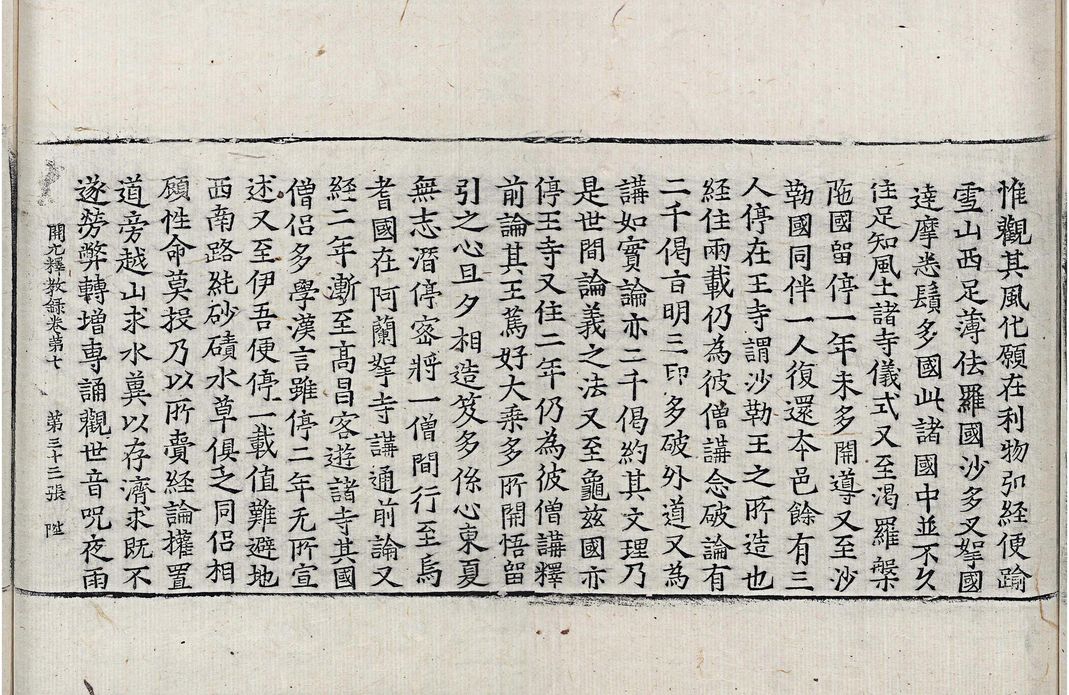 惟觀其風化願在利物弘経便踰
雪山西足薄佉羅國沙多叉拏國
達摩悉鬚多國此諸國中並不久
住足知風土諸寺儀式又至渴羅槃
陁國留停一年未多開導又至沙
勒國同伴一人復還夲邑餘有三
人停在王寺謂沙勒王之所造也
経住兩載仍為彼僧講念破論有
二千偈旨明三印多破外道又為
講如實論亦二千偈約其文理乃
是世間論義之法又至龜兹國亦
停王寺又住二年仍為彼僧講釋
前論其王篤好大乗多所開悟留
引之心旦夕相造笈多係心東夏
無志潛停密將一僧間行至烏
耆國在阿蘭拏寺講通前論又
経二年漸至高昌客遊諸寺其國
僧侣多學漢言雖停二年无所宣
述又至伊吾便停一載值難避地
西南路純砂磧水草俱乏同侣相
顧性命莫投乃以所賷経論權置
道旁越山求水兾以存濟求既不
遂勞弊轉增専誦觀世音呪夜雨
開元釋教録卷第七 第三十三張 陞